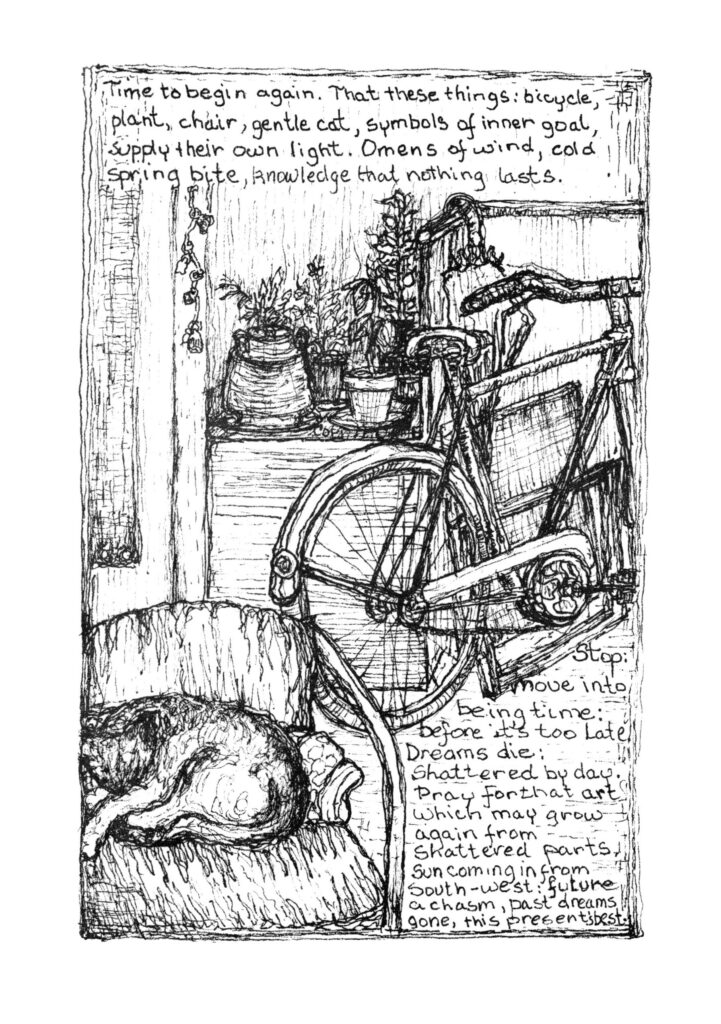 Time to begin again. That these things: bicycle,
plant, chair, gentle cat, symbols of inner goal,
supply their own light. Omens of wind, cold
spring bite, knowledge that nothing lasts.
Stop:
move into
being time:
before it's too late
Dreams die:
Shattered by day.
Pray for that art
which may grow
again from
shattered parts.
Sun coming in from
South-west: future
a chasm, past dreams
gone, this present: best.